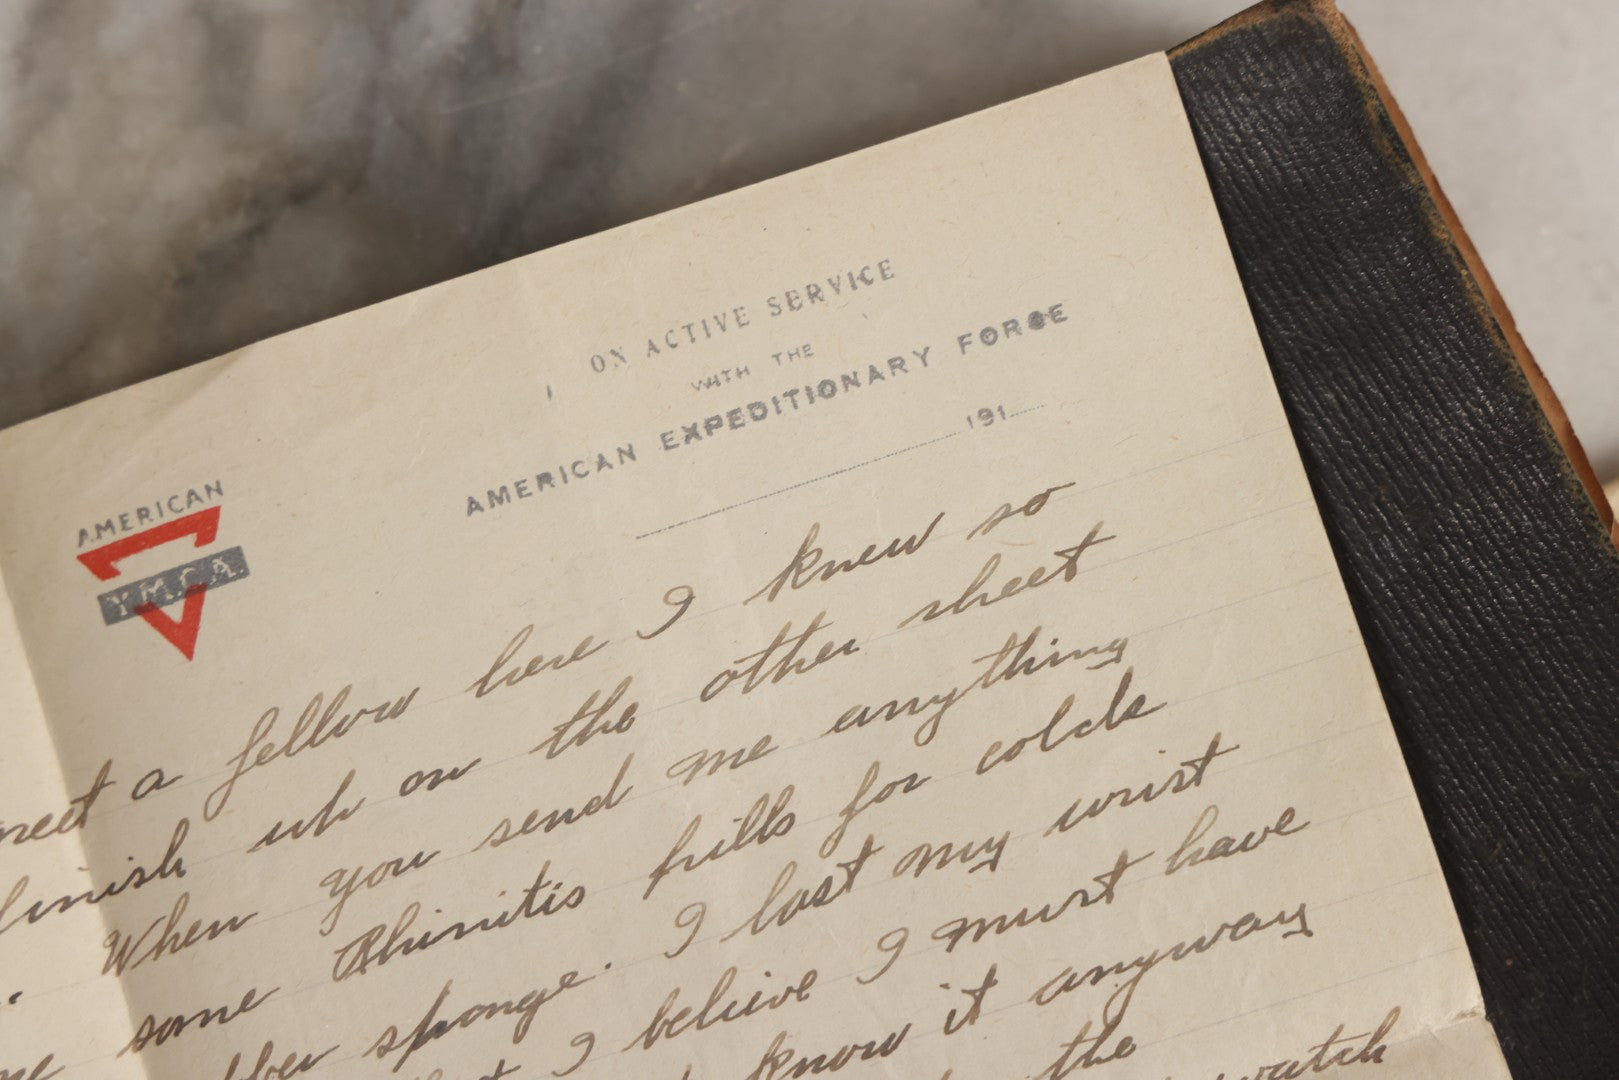 ON ACTIVE SERVICE
WITH THE
AMERICAN EXPEDITIONARY FORCE
191
AMERICAN
Y.M.C.A.
meet a fellow here I knew so
finish up on the other sheet
When you send me anything
some Rhinitis pills for colds
sponge. I lost my wrist
I believe I must have
know it anyway
the
watch